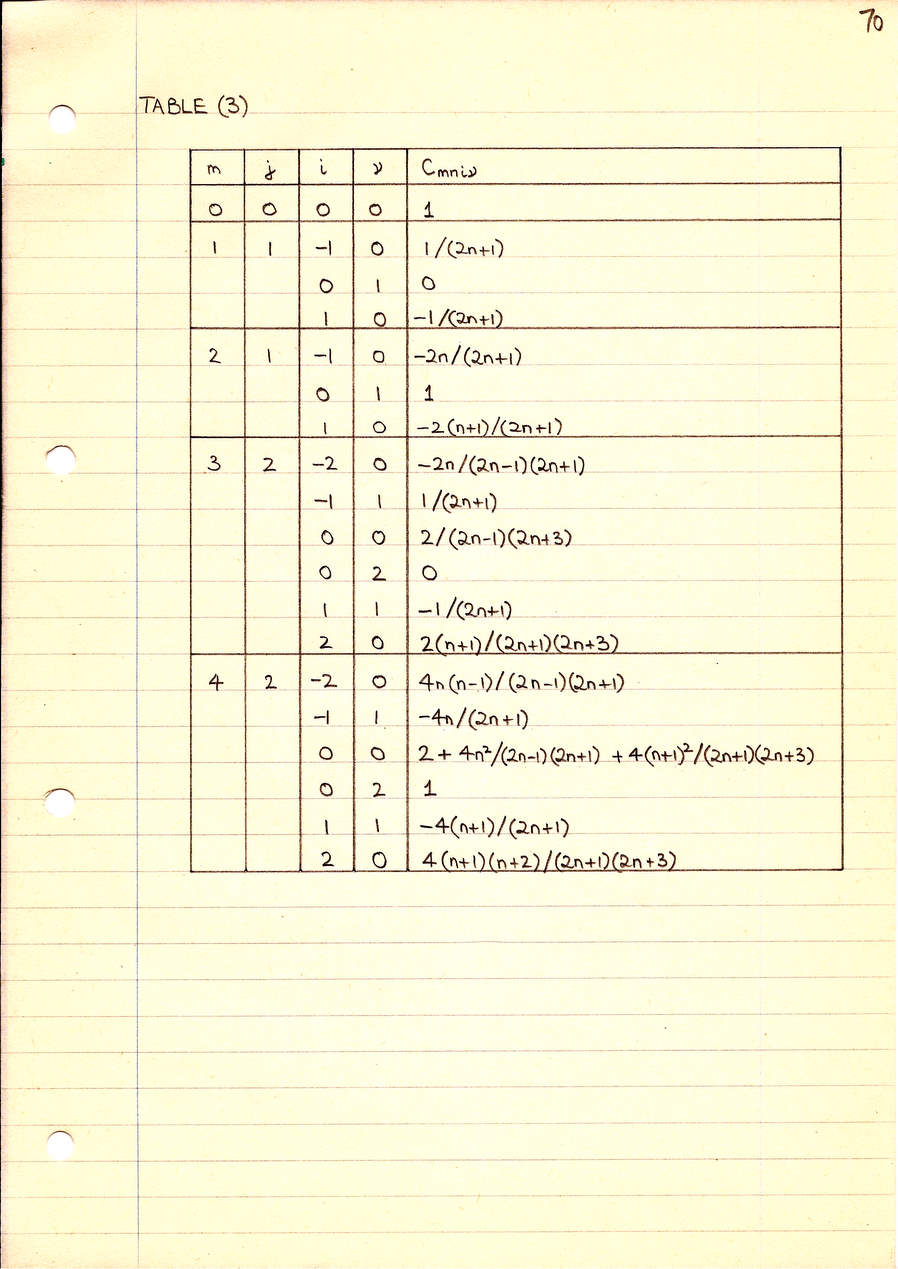 70
TABLE (3)
m j i ν Cmniν
0 0 0 0 1
1 1 -1 0 1/(2n+1)
0 1 0
1 0 -1/(2n+1)
2 1 -1 0 -2n/(2n+1)
0 1 1
1 0 -2(n+1)/(2n+1)
3 2 -2 0 -2n/(2n-1)(2n+1)
-1 1 1/(2n+1)
0 0 2/(2n-1)(2n+3)
0 2 0
1 1 -1/(2n+1)
2 0 2(n+1)/(2n+1)(2n+3)
4 2 -2 0 4n(n-1)/(2n-1)(2n+1)
-1 1 -4n/(2n+1)
0 0 2 + 4n²/(2n-1)(2n+1) + 4(n+1)²/(2n+1)(2n+3)
0 2 1
1 1 -4(n+1)/(2n+1)
2 0 4(n+1)(n+2)/(2n+1)(2n+3)